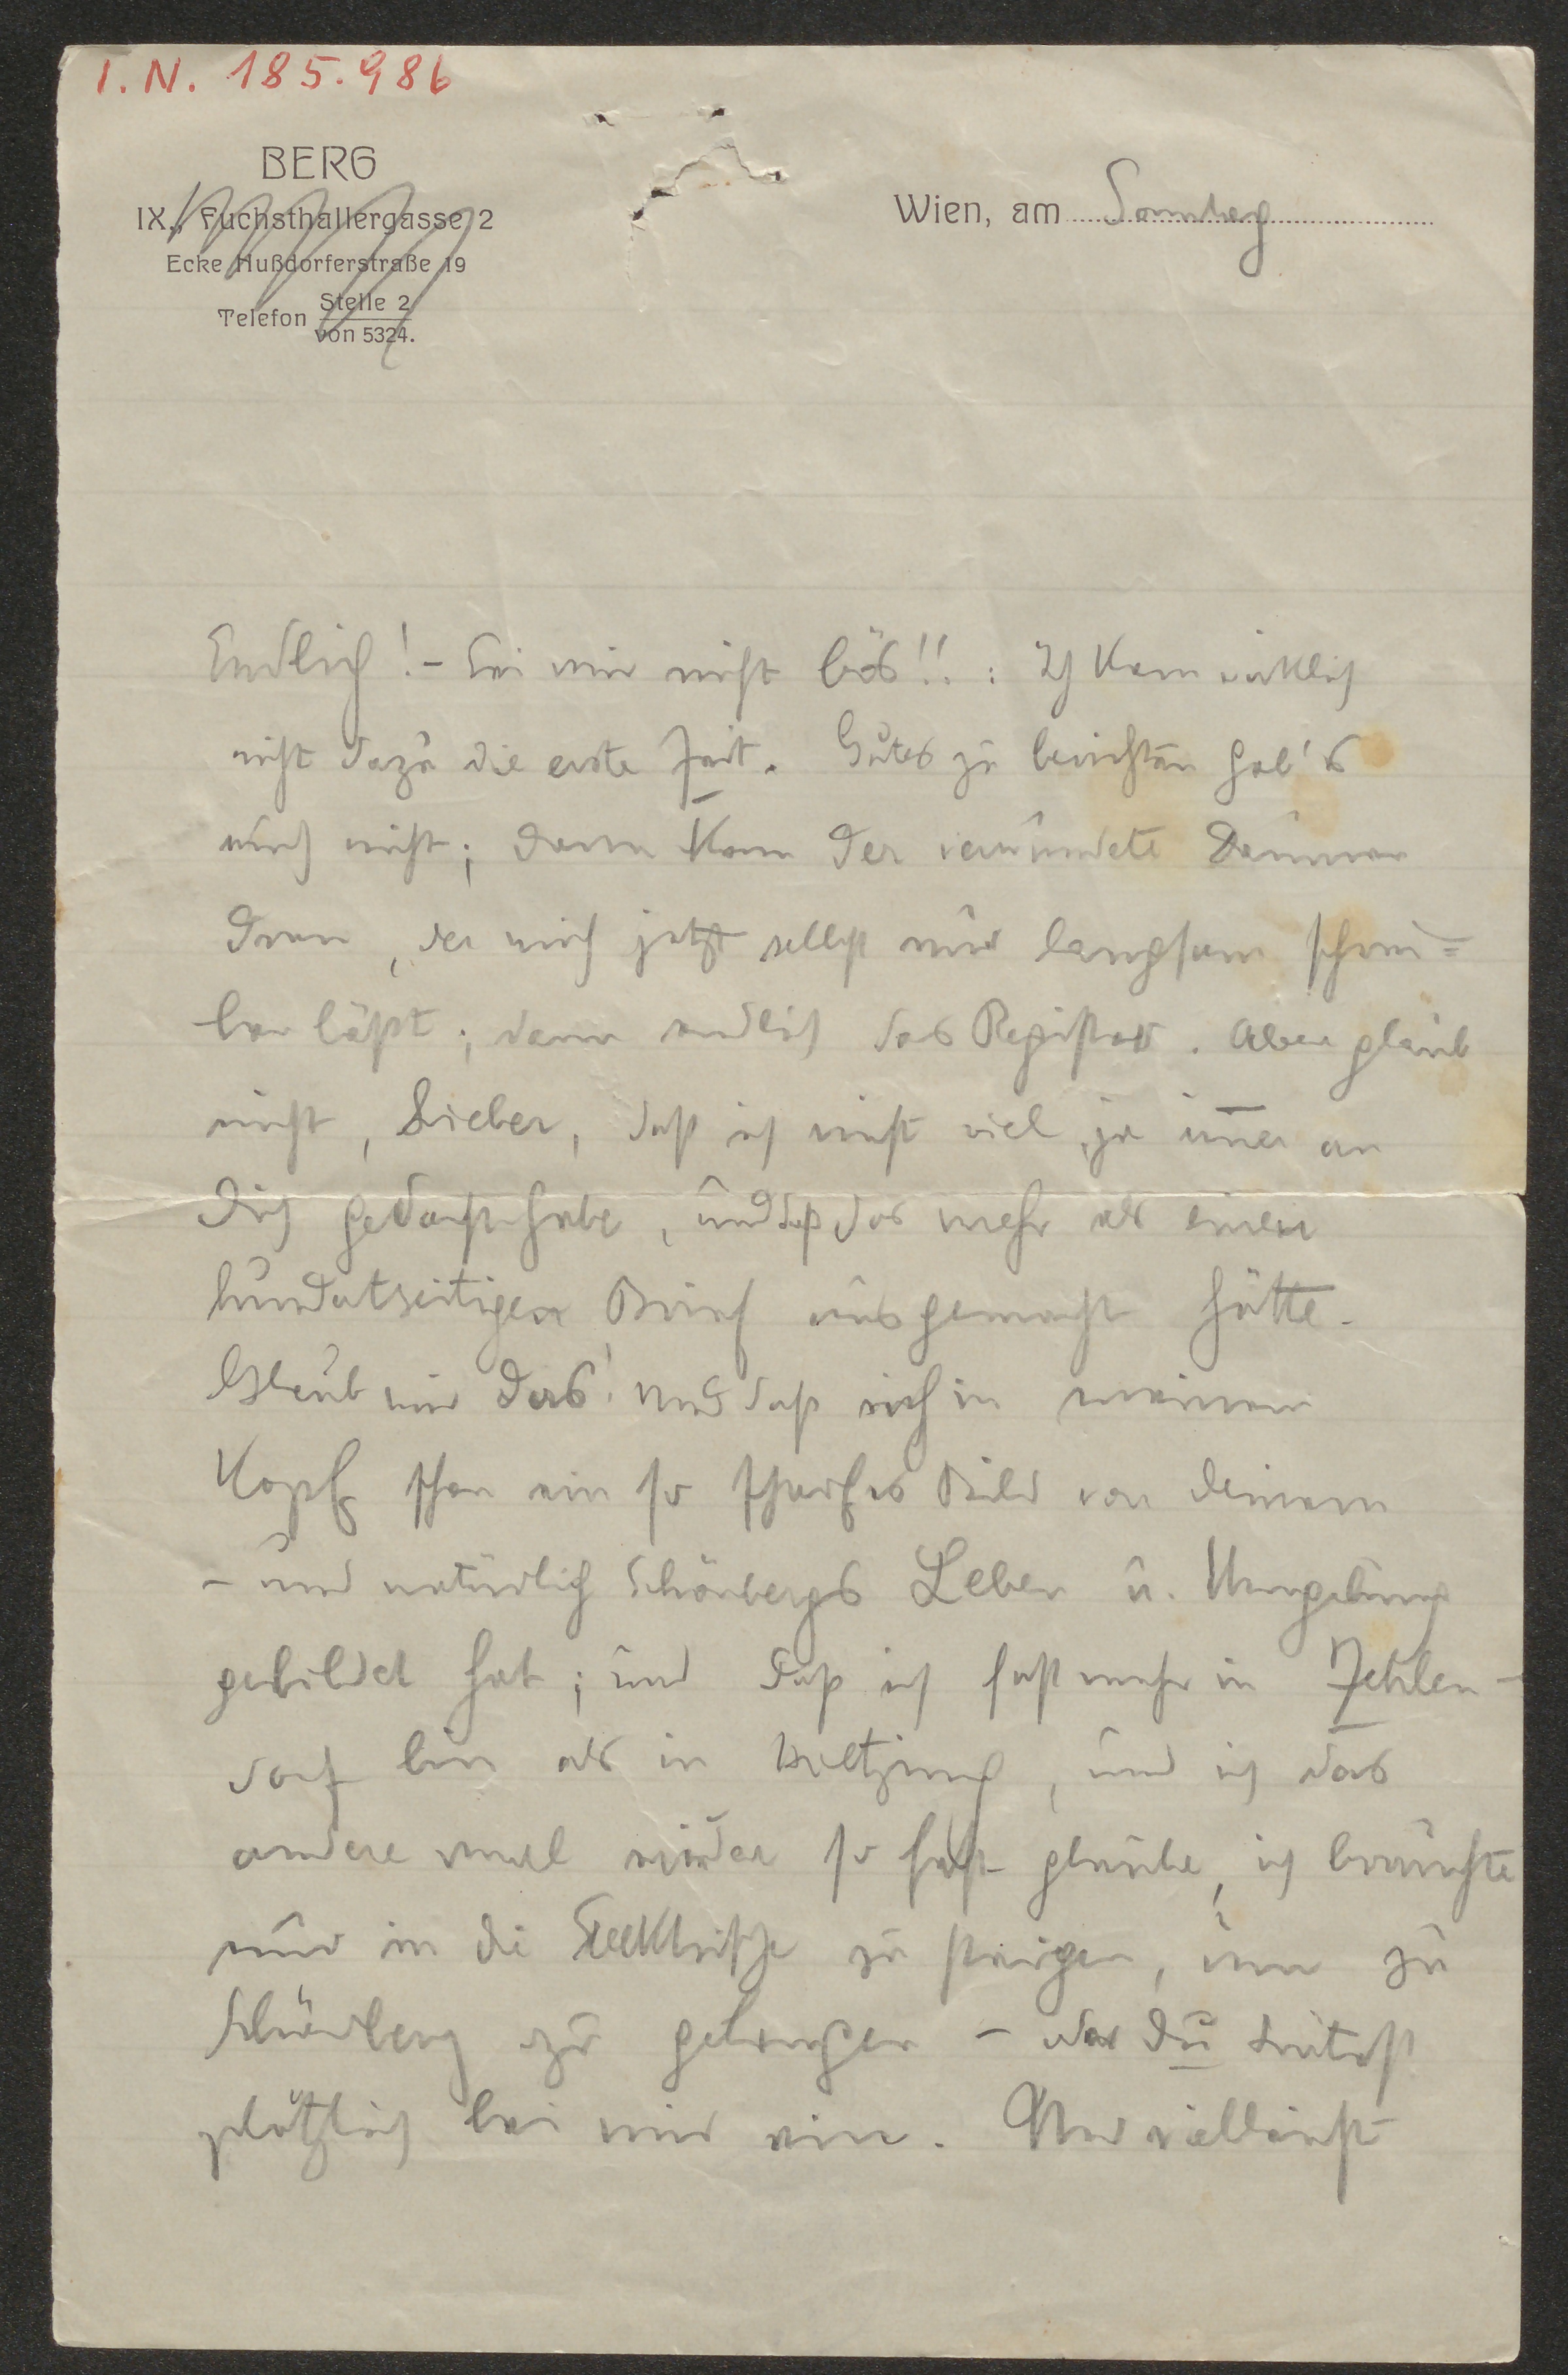 I. N. 185.986
BERG
IX., Fuchsthallergasse 2
Ecke Nußdorferstraße 19
Telefon Stelle 2
von 5324.
Wien, am Sonntag
Endlich! – Sei mir nicht bös!! : Ich kam wirklich
nicht dazu die erste Zeit. Gutes zu berichten gab's
auch nicht; dann kam der verwundete Daumen
dran, der mich jetzt selbst nur langsam schrei=
ben läßt; dann endlich das Register. Aber glaub
nicht, Lieber, daß ich nicht viel, ja im̅er an
Dich gedacht habe, und daß das mehr als einen
hundertseitigen Brief ausgemacht hätte.
Glaub mir das! Und daß sich in meinem
Kopf schon ein so scharfes Bild von Deinem
– und natürlich Schönbergs Leben u. Umgebung
gebildet hat; und daß ich fast mehr in Zehlen-
dorf bin als in Hietzing, und ich das
andere mal wieder so fest glaube, ich bräuchte
nur in die Elektrische zu steigen, um zu
Schönberg zu gelangen – oder Du trätest
plötzlich bei mir ein. Und vielleicht